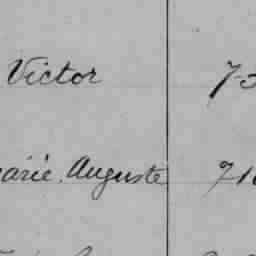 Victor 73
arie Auguste 71